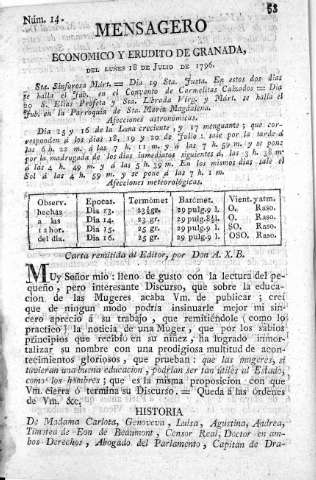 Núm. 14.
53
MENSAGERO
ECONOMICO Y ERUDITO DE GRANADA,
DEL LUNES 18 DE JULIO DE 1796.
Sta. Sinforosa Márt. = Dia 19 Sta. Justa. En estos dos dias
se halla el Jub. en el Convento de Carmelitas Calzados = Dia
20 S. Elias Profeta y Sta. Librada Virg. y Márt. se halla el
Jub. en la Parroquia de Sta. Maria Magdalena.
Afecciones astronómicas.
Dia 15 y 16 de la Luna creciente, y 17 menguante; que cor-
responden á los dias 18, 19 y 20 de Julio: sale por la tarde á
las 6 h. 22 m. á 7 h. 11 m. y á las 7 h. 59 m. y se pone
por la madrugada de los dias inmediatos siguientes á las 3 h. 58 m
á las 4 h. 49 m. y á las 5 h. 39 m. En los mismos dias sale el
Sol á las 4 h. 59 m. y se pone á las 7 h. 1 m.
Afecciones meteorológicas.
Observ. Epocas. Termómet Barómet. Vient. y atm.
hechas Dia 13. 23½gr. 29 pulg. 9 l. O. Raso.
a las Dia 14. 25 gr. 29 pulg. 8½l. O. Raso.
12 hor. Dia 15. 25 gr. 29 pulg. 9 l. SO. Raso.
del dia. Dia 16. 25 gr. 29 pulg. 9 l. OSO. Raso.
Carta remitida al Editor, por Don A. X. B.
MUy Señor mio: lleno de gusto con la lectura del pe-
queño, pero interesante Discurso, que sobre la educa-
cion de las Mugeres acaba Vm. de publicar; creí
que de ningun modo podria insinuarle mejor mi sin-
cero aprecio á su trabajo, que remitiéndole (como lo
practico) la noticia de una Muger, que por los sábios
principios que recibió en su niñez, ha logrado inmor-
talizar su nombre con una prodigiosa multitud de acon-
tecimientos gloriosos, que prueban: que las mugeres, si
tuvieran una buena educacion, podrian ser tan útiles al Estado,
como los hombres; que es la misma proposicion con que
Vm. cierra ó termina su Discurso. = Queda á las órdenes
de Vm. &c.
HISTORIA
De Madama Carlota, Genoveva, Luisa, Agustina, Andrea,
Timotea de Eon de Beaumont, Censor Real, Doctor en am-
bos Derechos, Abogado del Parlamento, Capitan de Dra-